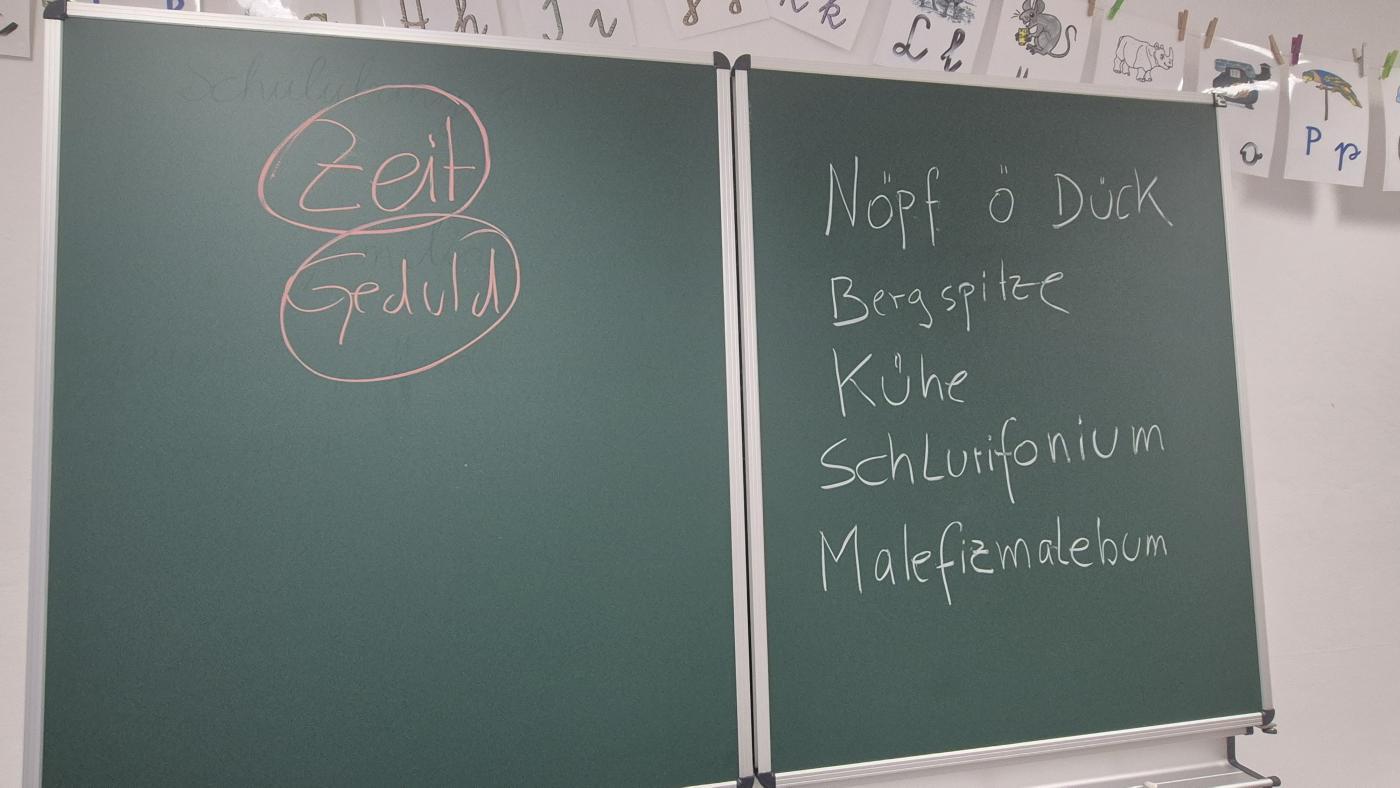 H h
J i
k k
L l
P p
Zeit
Geduld
Nöpf ö Dück
Bergspitze
Kühe
Schlurifonium
Malefizmalebum